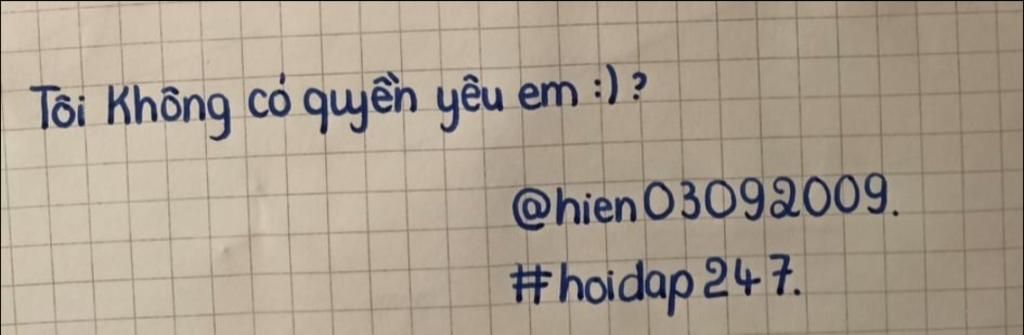 Tôi Không có quyền yêu em :) ?
@hien03092009.
#hoidap247.